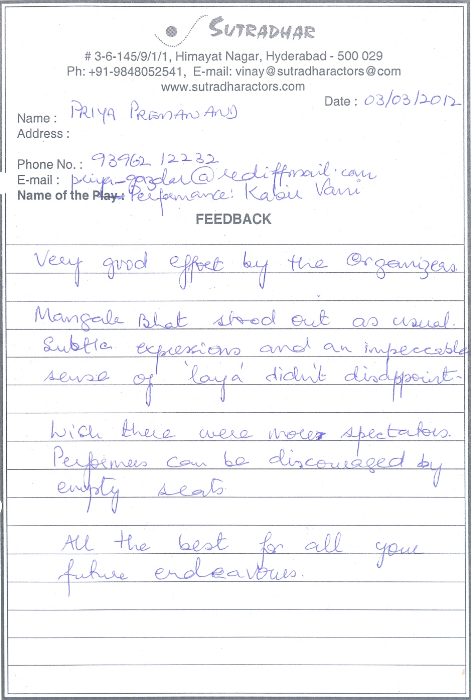 SUTRADHAR
# 3-6-145/9/1/1, Himayat Nagar, Hyderabad - 500 029
Ph: +91-9848052541, E-mail: vinay@sutradharactors@com
www.sutradharactors.com
Date : 03/03/2012
Name : PRIYA PREMANAND
Address :
Phone No. : 93962 12232
E-mail : priya-gazdar@rediffmail.com
Name of the Play: Performance: Kabir Vani
FEEDBACK
Very good effort by the Organizers.
Mangala Bhat stood out as usual.
Subtle expressions and an impeccable
sense of 'laya' didn't disappoint.
Wish there were more spectators.
Performers can be discouraged by
empty seats
All the best for all your
future endeavours.